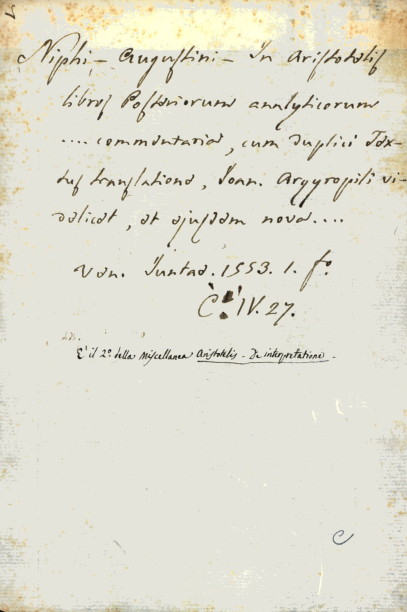 Niphi - Augustini - In Aristotelis
libros Posteriorum analyticorum
.... commentaria, cum duplici Tex-
tus translatione, Joan. Argyropili vi-
delicet, et ejusdem nova....
Ven. Juntae. 1553. 1. fo.
C. IV. 27.
E' il 2o. della Miscellanea Aristotelis - De interpretatione -
C